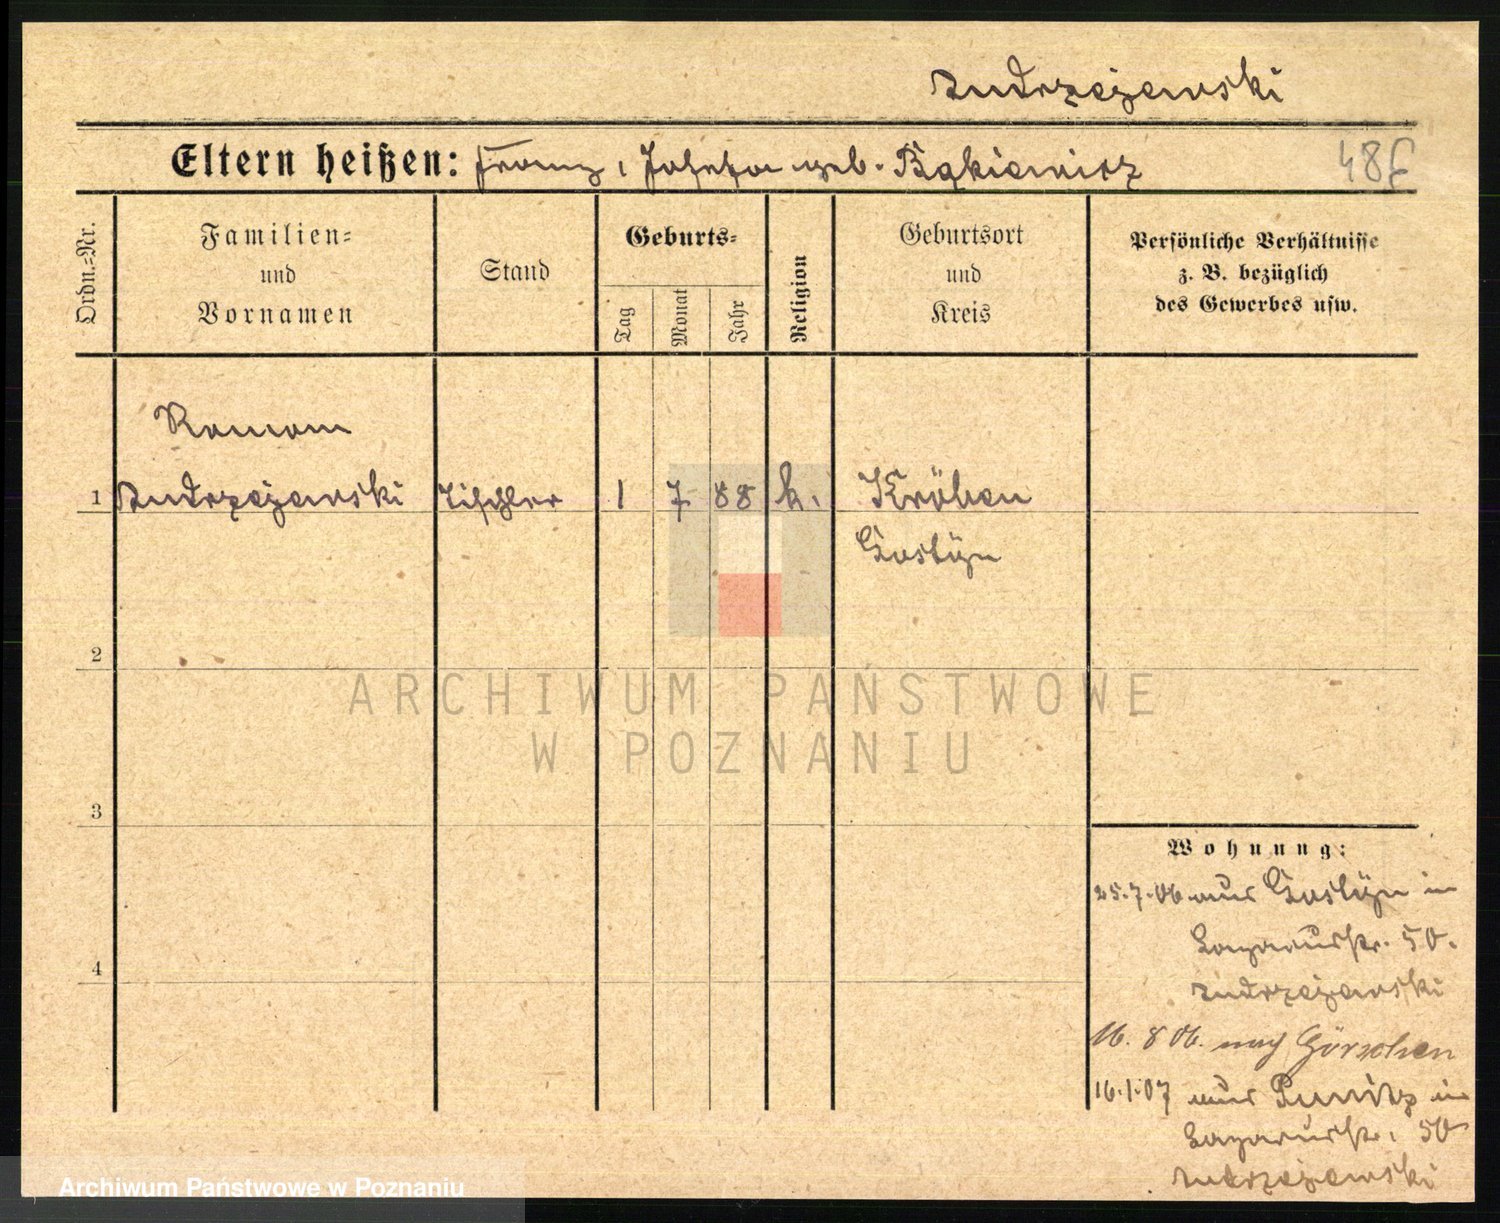 Andrzejewski
Eltern heißen: Franz, Josefa geb. Bąkiewicz
48f
Ordn.=Nr.
Familien=
und
Vornamen
Stand
Geburts=
Tag
Monat
Jahr
Religion
Geburtsort
und
Kreis
Persönliche Verhältnisse
z. B. bezüglich
des Gewerbes usw.
Roman
1 Andrzejewski Tischler 1 7 88 k. Kröben
Gostyn
2
ARCHIWUM PAŃSTWOWE
W POZNANIU
3
4
Wohnung:
25.7.06 aus Gostyn in
Lazarusstr. 50.
Andrzejewski
16. 8 06. nach Görchen
16.1.07 aus Punitz in
Lazarusstr. 50
Andrzejewski
Archiwum Państwowe w Poznaniu